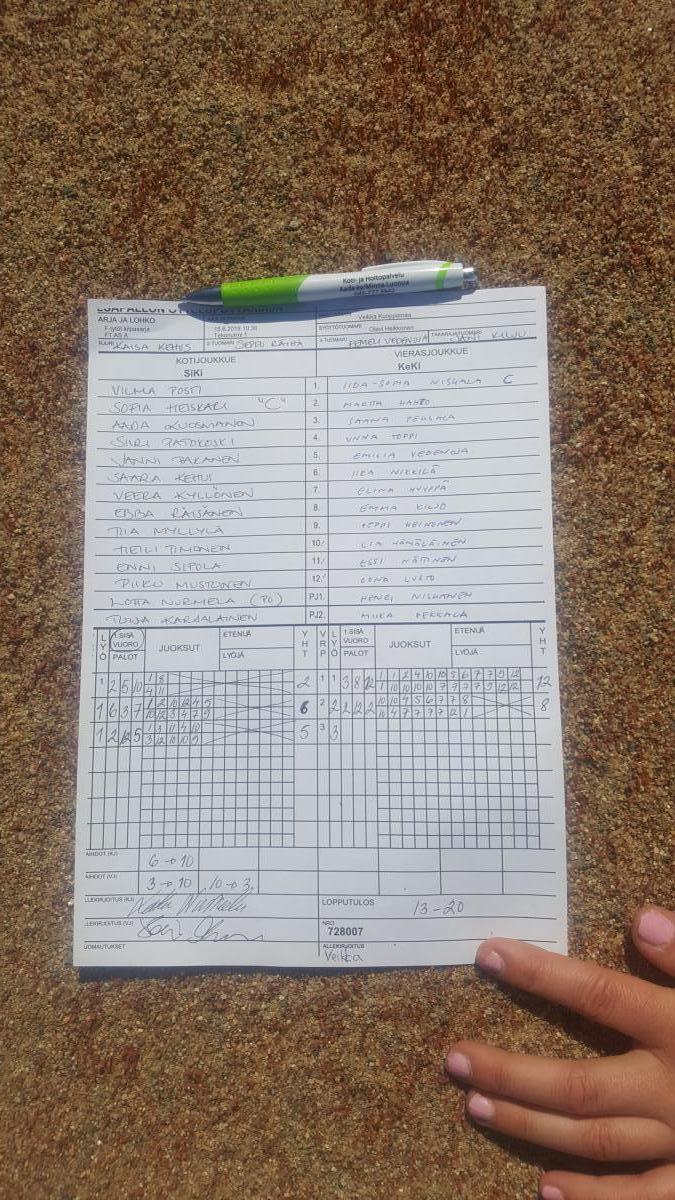 Koti- ja Hoitopalvelu
SARJA JA LOHKO
F-tytöt kilpasarja
FT AS A
15.6.2019 10:30
Tekonurmi 1
Veikka Kuoppamaa
SYÖTTÖTUOMARI Olavi Heikkonen
KAISA KEHUS 2-TUOMARI SEPPO RÄIHÄ 3-TUOMARI VEDENOJA TAKARAJATUOMARI JANI KILJO
KOTIJOUKKUE VIERASJOUKKUE
SiKi KeKi
VILMA POSTI 1. IIDA-SOFIA NISKALA C
SOFIA HEISKARI "C" 2. MARTTA
AADA KUOSMANEN 3. SAANA PEKKALA
SIIRI PATOKOSKI 4. UNNA TOPPI
VANNI TAKANEN 5. EMILIA VEDENOJA
SAARA KEHUS 6. IIRA NIKKILÄ
VEERA KYLLÖNEN 7. ELINA HYYPPÄ
EBBA RÄISÄNEN 8. EMMA KILJO
TIIA MYLLYLÄ 9. HEINONEN
HEILI TIMONEN 10. LIA HÄMÄLÄINEN
ENNI SIPOLA 11. ESSI MÄTTINEN
PIIKU MUSTONEN 12. OONA LUSTO
LOTTA NURMELA (PO) PJ1. HENRI NISKANEN
TUIJA KARJALAINEN PJ2. MIIKA PEKKALA
LYÖ 1.SISÄ VUORO PALOT JUOKSUT ETENIJÄ LYÖJÄ YHT VRP LYÖ 1.SISÄ VUORO PALOT JUOKSUT ETENIJÄ LYÖJÄ YHT
1 2 5 10 1 8 2 1 1 3 8 12 1 1 2 4 10 10 5 6 7 7 9 12 12
4 11 1 10 10 10 10 7 7 7 7 9 12 12
1 6 3 7 1 2 10 12 4 5 6 2 2 2 12 2 10 10 4 5 6 7 7 8 8
10 12 3 4 7 9 10 4 7 7 7 7 12 1
1 2 12 5 1 3 11 4 10 5 3 3
3 12 10 10 9
VAIHDOT (KJ) 6 → 10
VAIHDOT (VJ) 3 → 10 10 → 3
ALLEKIRJOITUS (KJ)
LOPPUTULOS 13-20
ALLEKIRJOITUS (VJ)
NRO:
728007
HUOMAUTUKSET
ALLEKIRJOITUS
Veikka